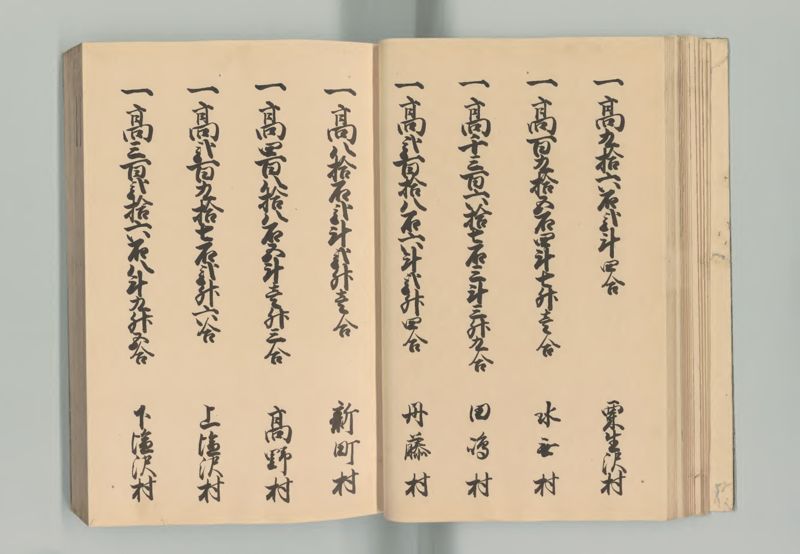 一高九拾六石弐斗四合 栗生沢村
一高百九拾五石四斗七升壱合 水無村
一高千三百六拾七石三斗三升九合 田嶋村
一高弐百拾八石六斗弐升四合 丹藤村
一高八拾石弐斗弐升壱合 新町村
一高四百八拾八石五斗壱升三合 高野村
一高弐百九拾七石弐升六合 上塩沢村
一高三百弐拾六石八斗九升五合 下塩沢村